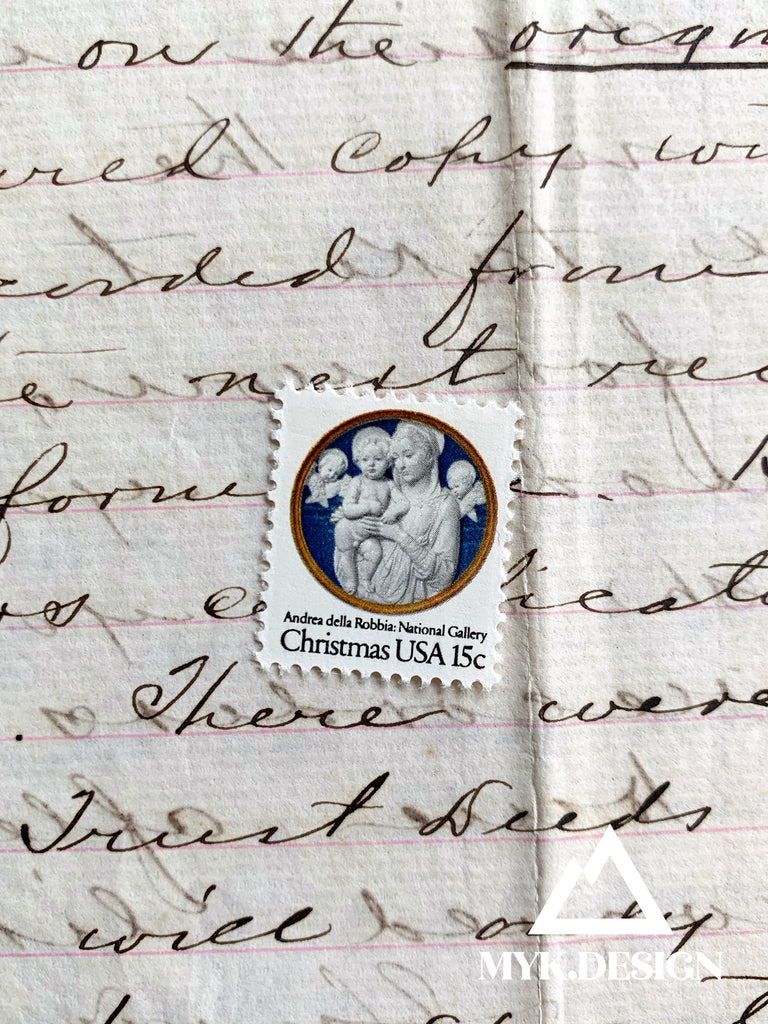 on the origin
ured copy wi
corded from
next rec
form
There were
Trust Deeds
will only
Andrea della Robbia: National Gallery
Christmas USA 15c
MYK.DESIGN